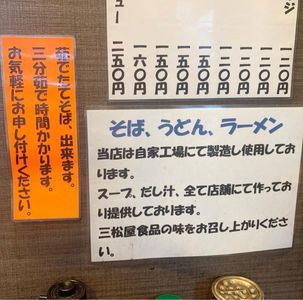 ジ
一二〇円
一五〇円
一五〇円
一六〇円
二五〇円
ュー
茹でたてそば、出来ます。
三分茹で時間かかります。
お気軽にお申し付けください。
そば、うどん、ラーメン
当店は自家工場にて製造し使用してお
ります。
スープ、だし汁、全て店舗にて作ってお
り提供しております。
三松屋食品の味をお召し上がりくださ
い。